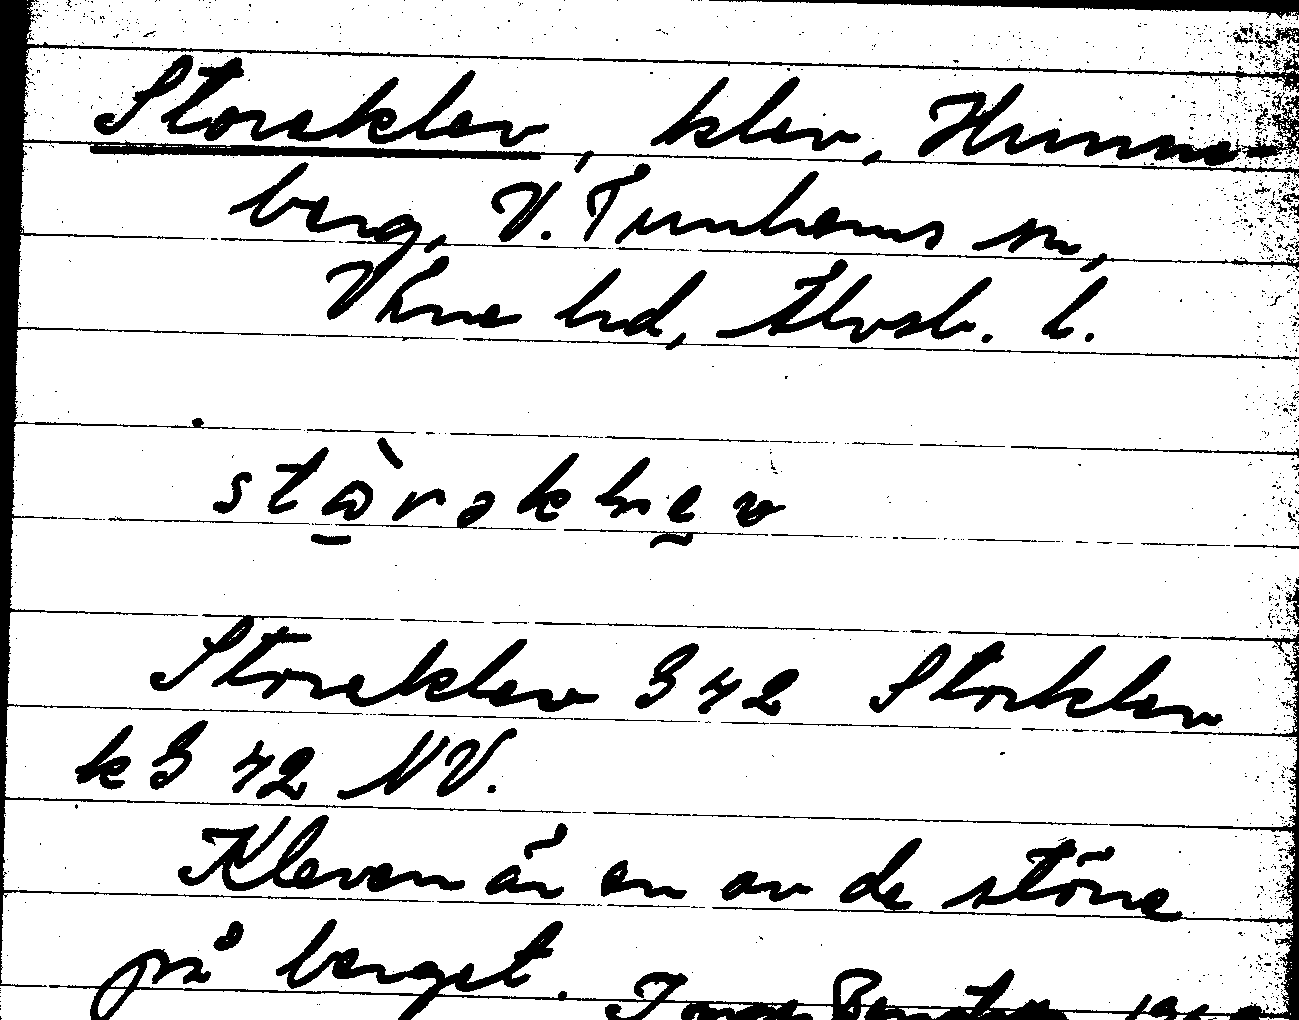 Storeklev, klev, Hunne-
berg, V. Tunhems sn,
Väne hd, Älvsb. l.
stɷ̀rəklev
Storeklev G 42 Storklev
k G 42 NV.
Kleven är en av de större
på berget.